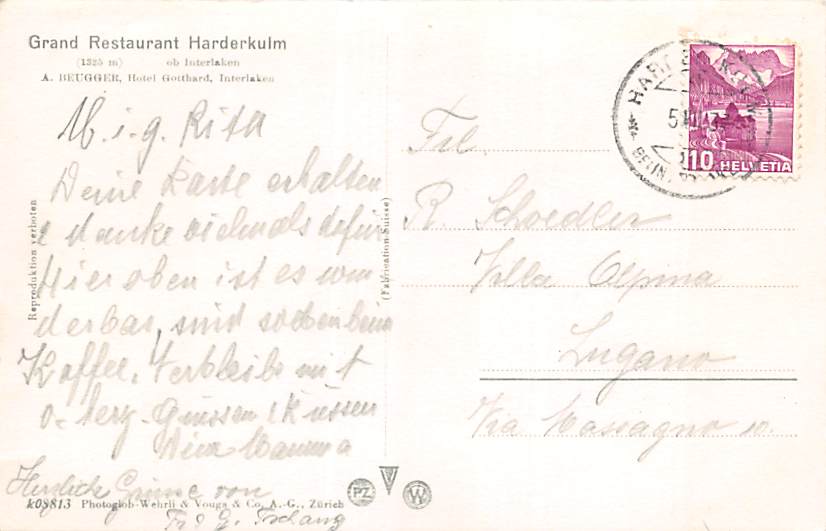 Grand Restaurant Harderkulm
(1325 m) ob Interlaken
A. BEUGGER, Hotel Gotthard, Interlaken
M. i. g. Rita
Deine Karte erhalten
& danke vielmals dafür
Hier oben ist es wun
derbar, sind soeben beim
Kaffee. Verbleibe mit
herz. Grüssen & Küssen
Deine Mamma
Herzliche Grüsse von
Frl
Reproduktion verboten
(Fabrication Suisse)
k08813 Photoglob-Wehrli & Vouga & Co. A.-G., Zürich
PZ W
Frl.
R. Schoedler
Villa Alpina
Lugano
Via Massagno 10.
10 HELVETIA